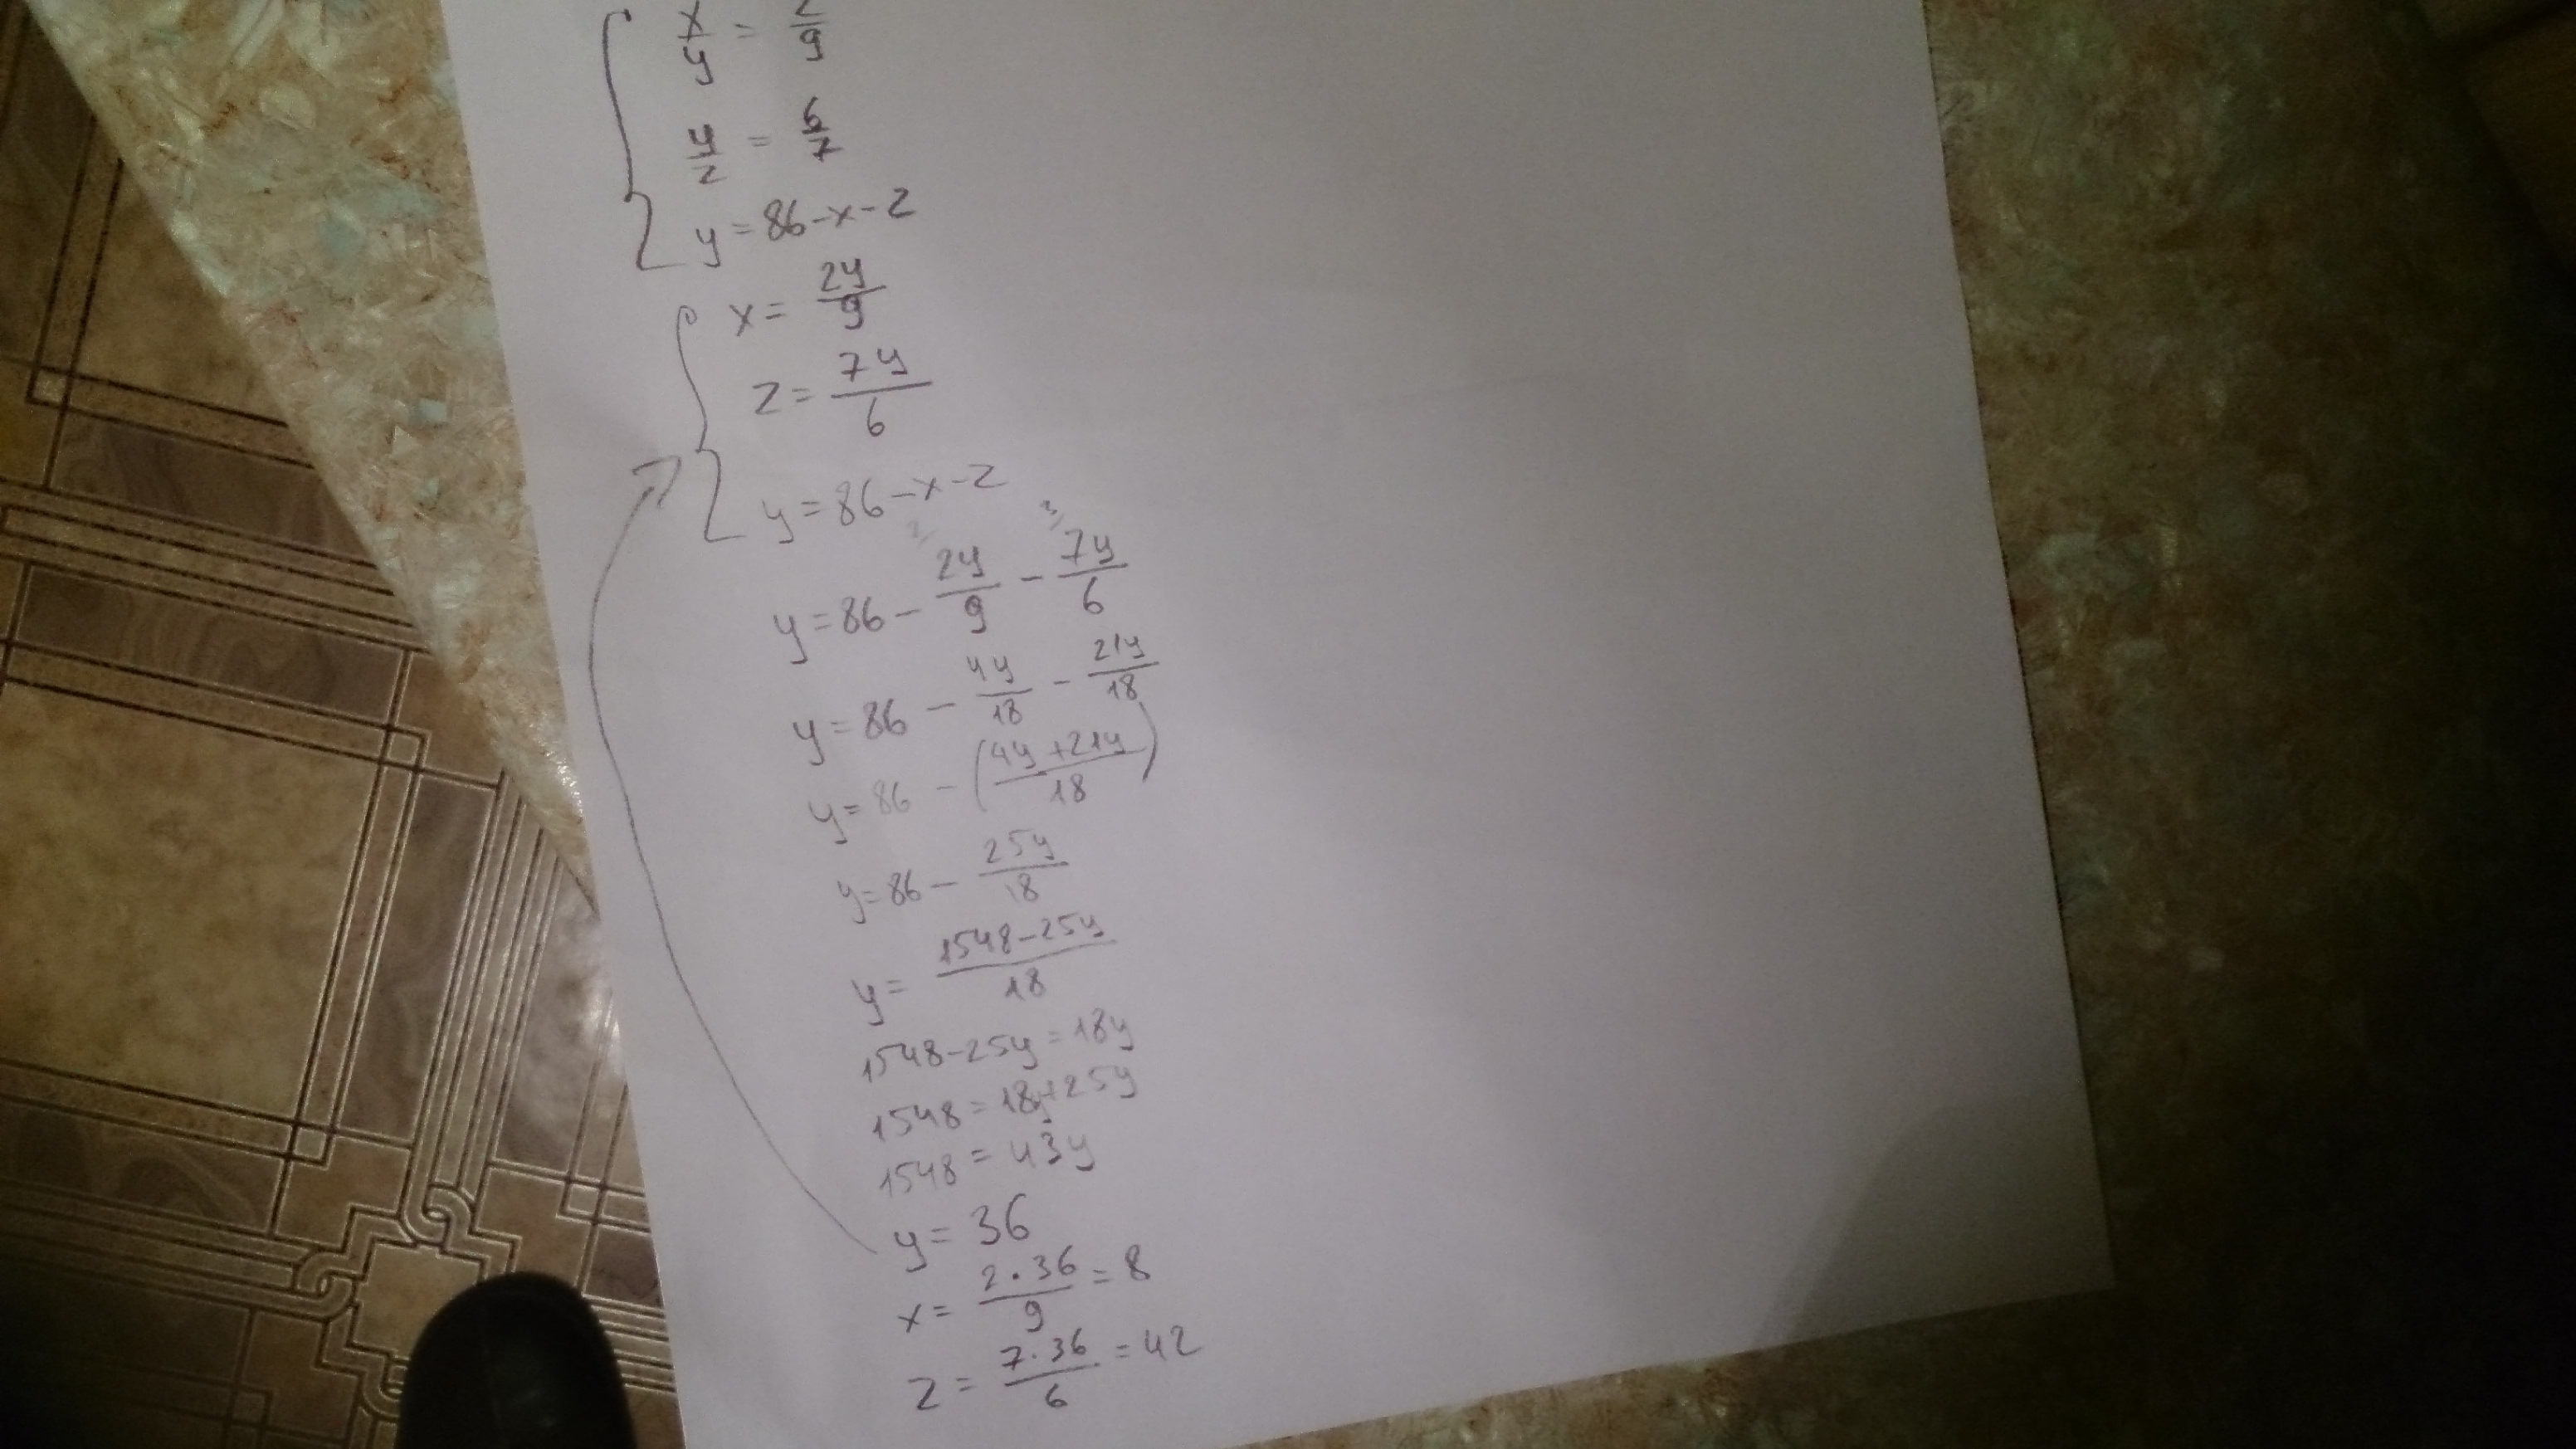 x/y = 2/9
y/z = 6/7
y = 86 - x - z
x = 2y/9
z = 7y/6
y = 86 - x - z
2/ 3/
y = 86 - 2y/9 - 7y/6
y = 86 - 4y/18 - 21y/18
y = 86 - (4y + 21y / 18)
y = 86 - 25y/18
y = 1548 - 25y / 18
1548 - 25y = 18y
1548 = 18y + 25y
1548 = 43y
y = 36
x = 2 · 36 / 9 = 8
z = 7 · 36 / 6 = 42